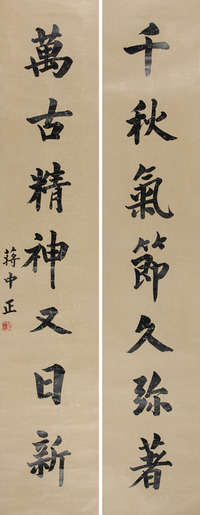 千秋氣節久弥著
萬古精神又日新
蔣中正